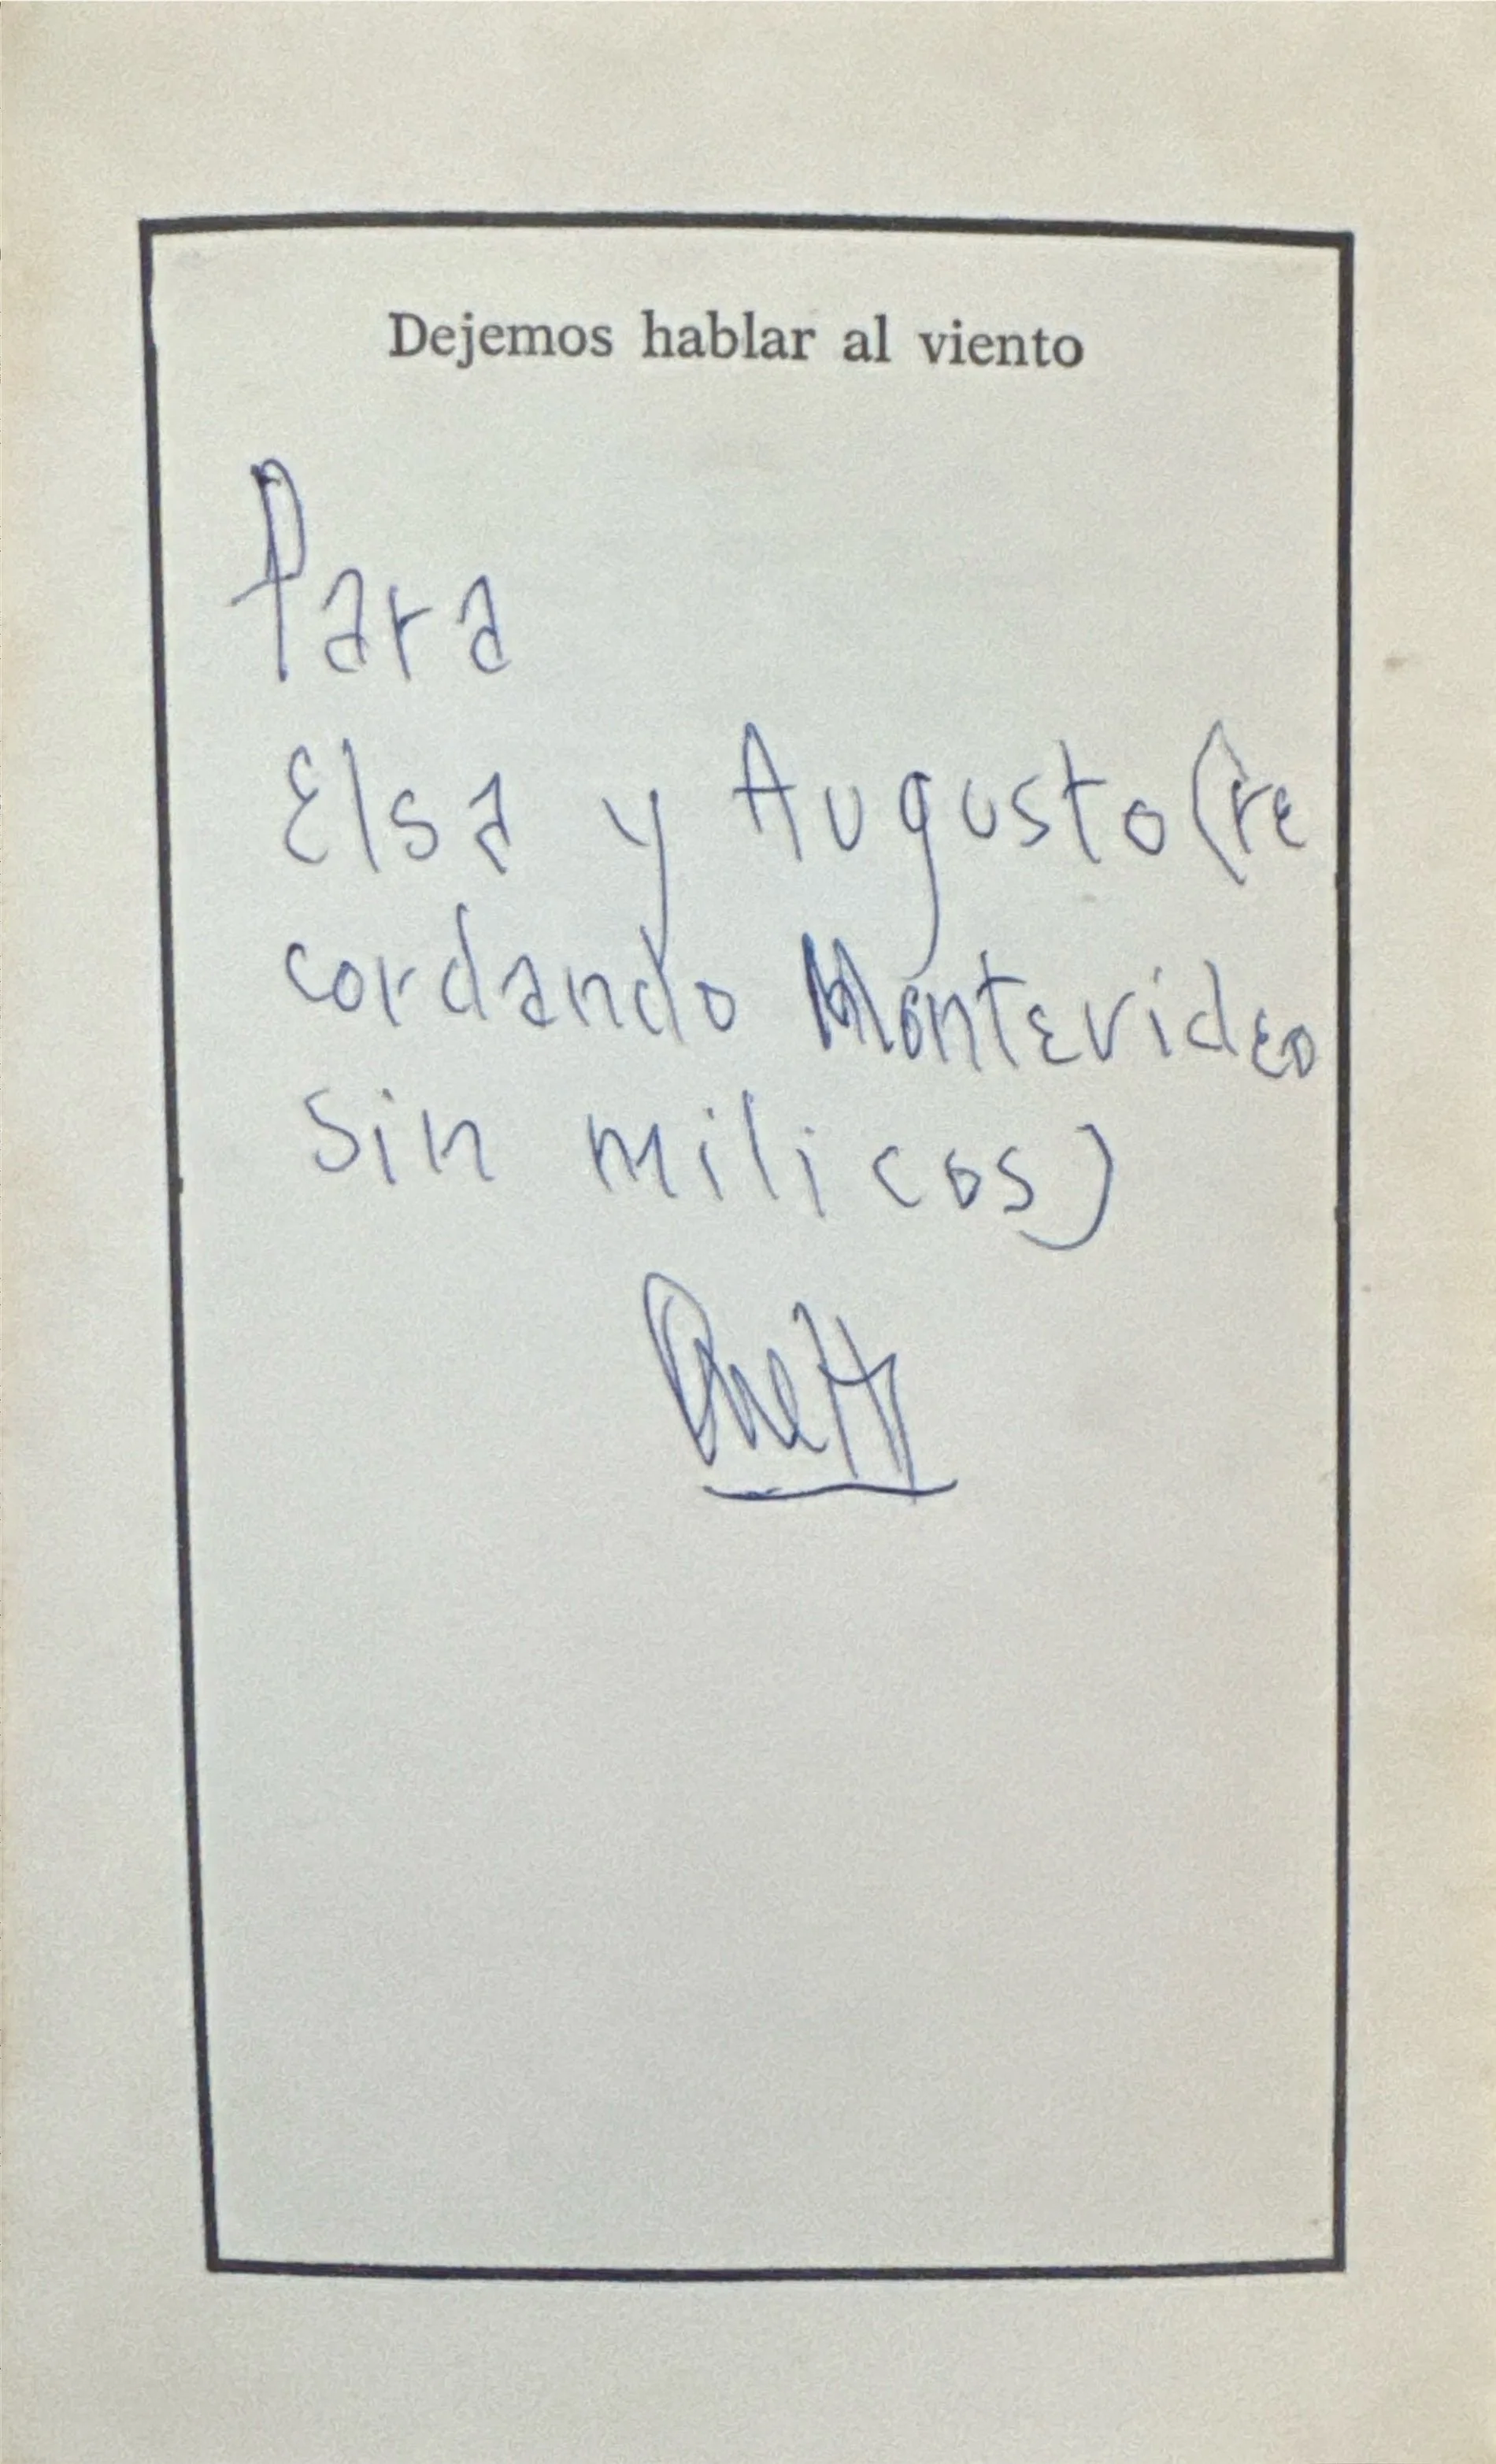 Dejemos hablar al viento
Para
Elsa y Augusto (re
cordando Montevideo
sin milicos)
Onetti